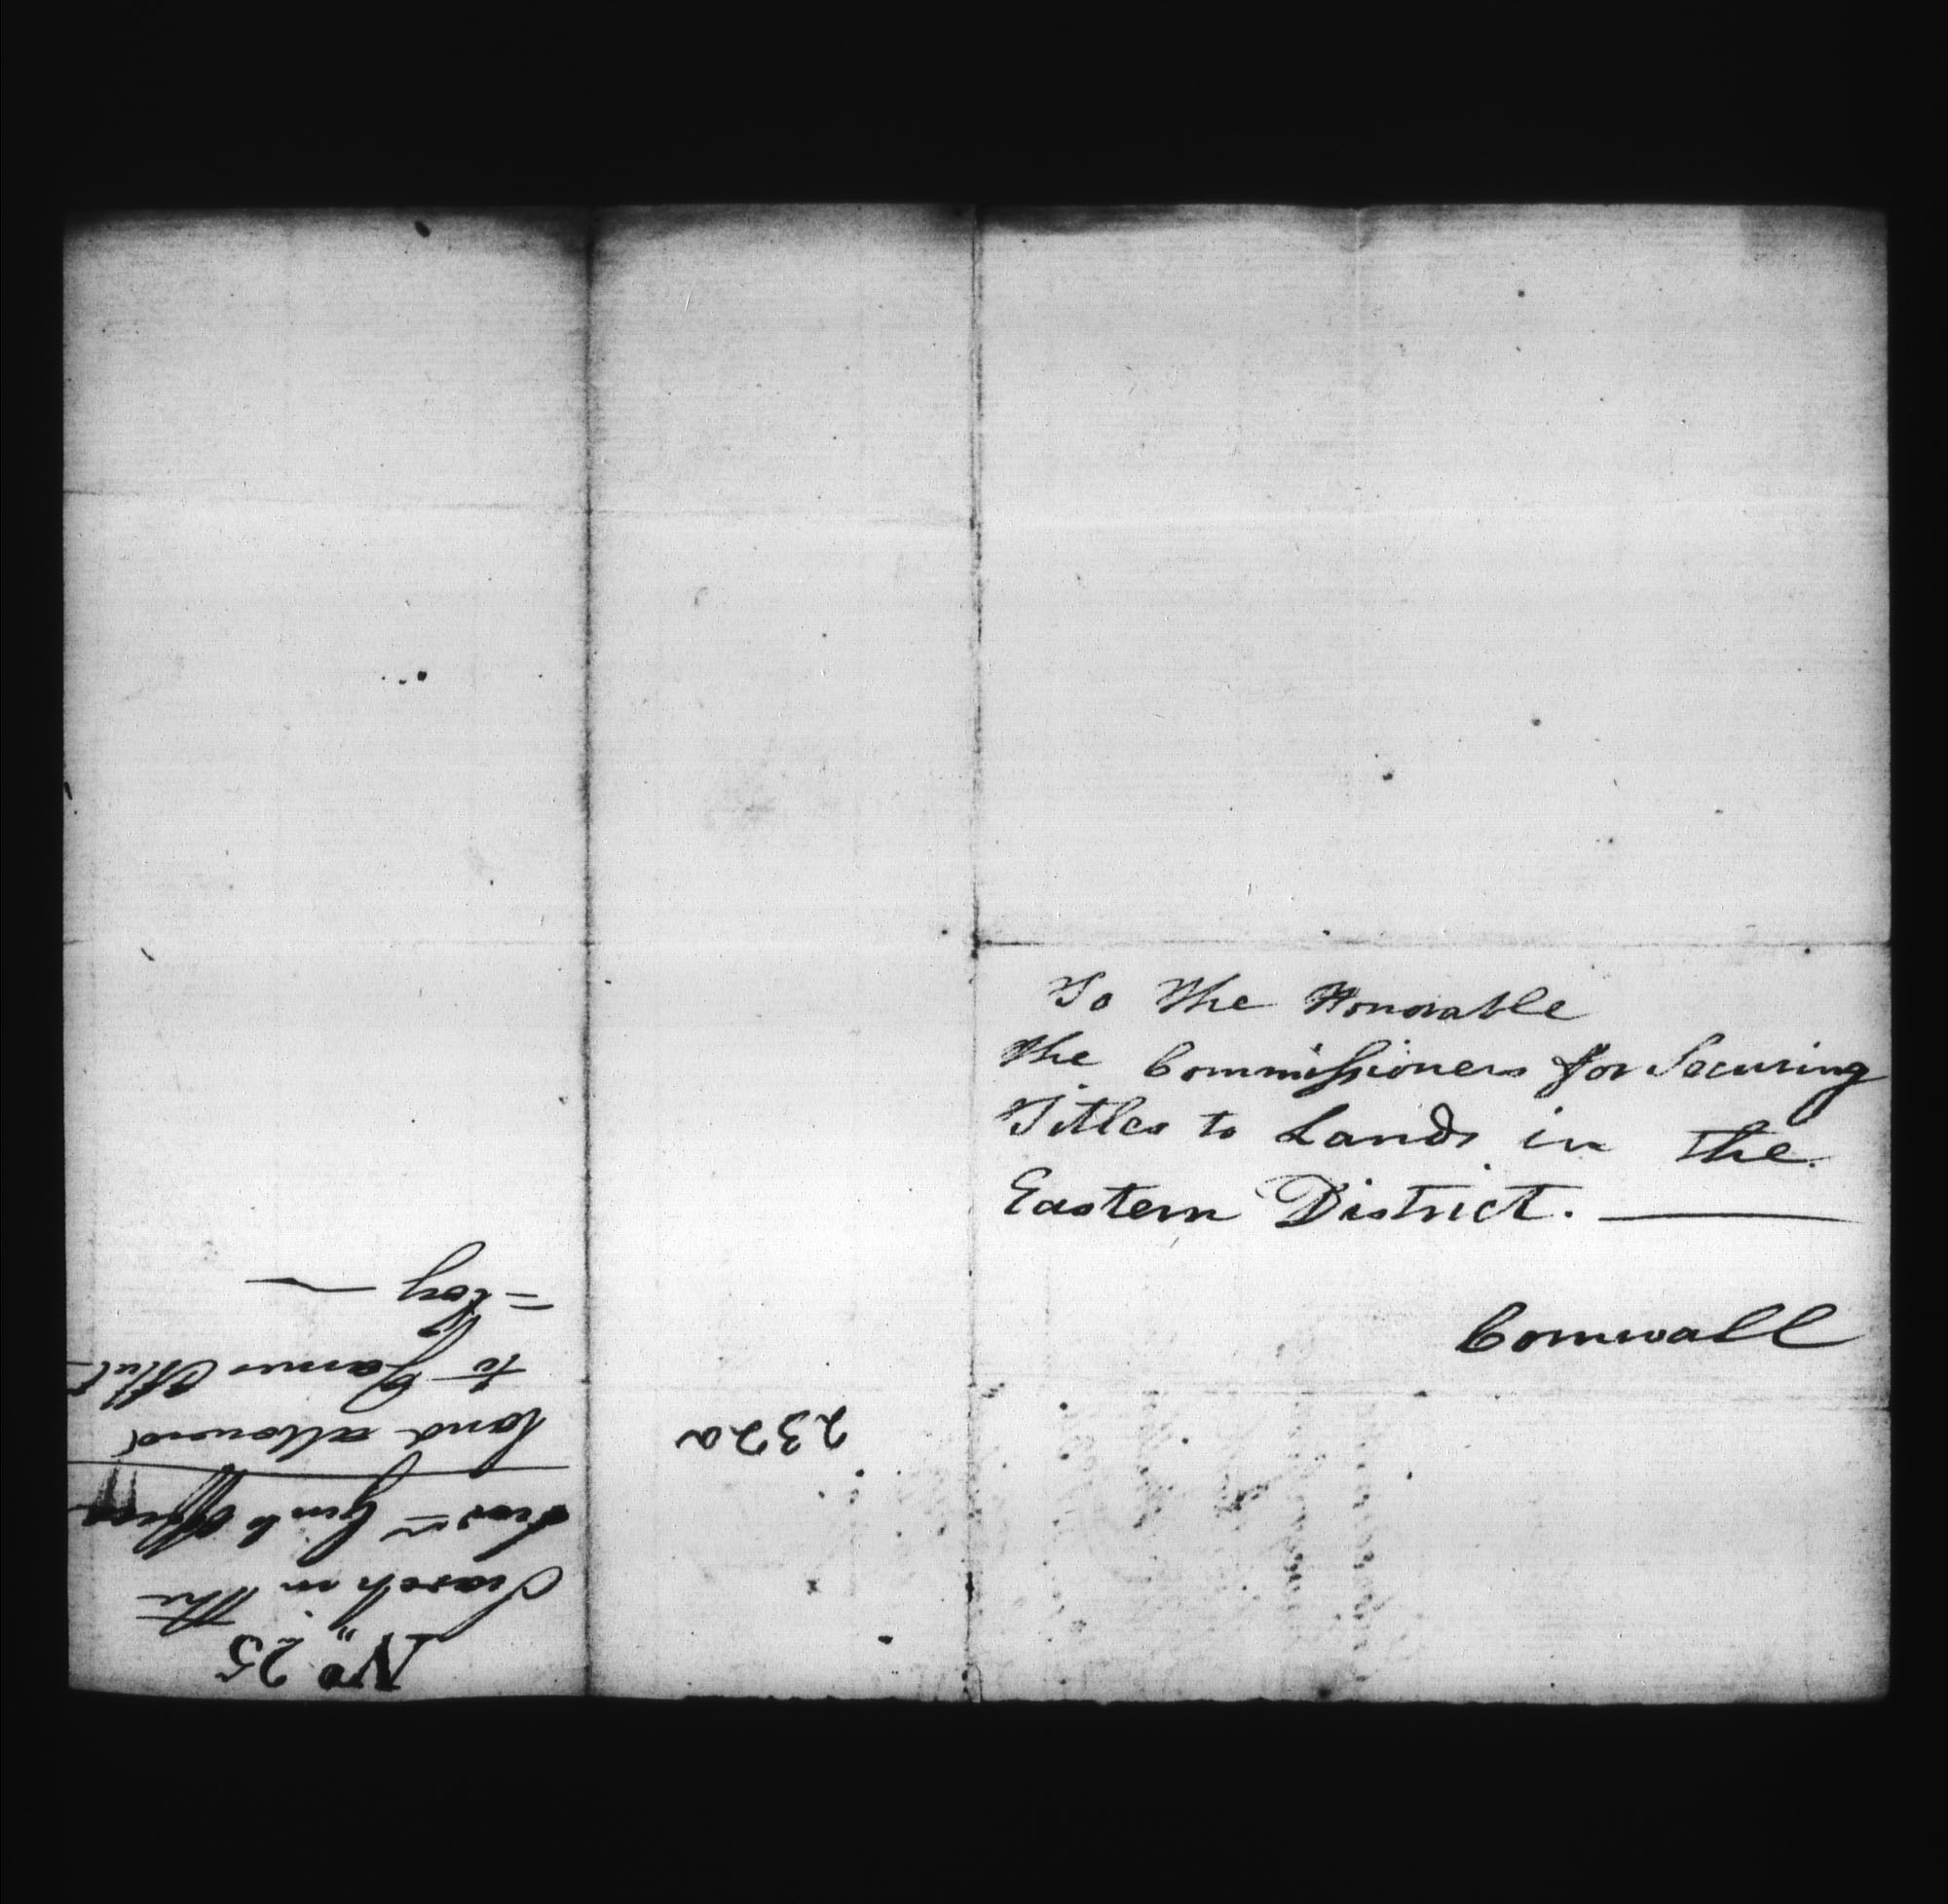 To The Honorable
the Commissioners for Securing
Titles to Lands in the
Eastern District. —
Cornwall
2320
No. 25
Search in the
Survr Genls office
land allowed
to James Mul-
=loy —